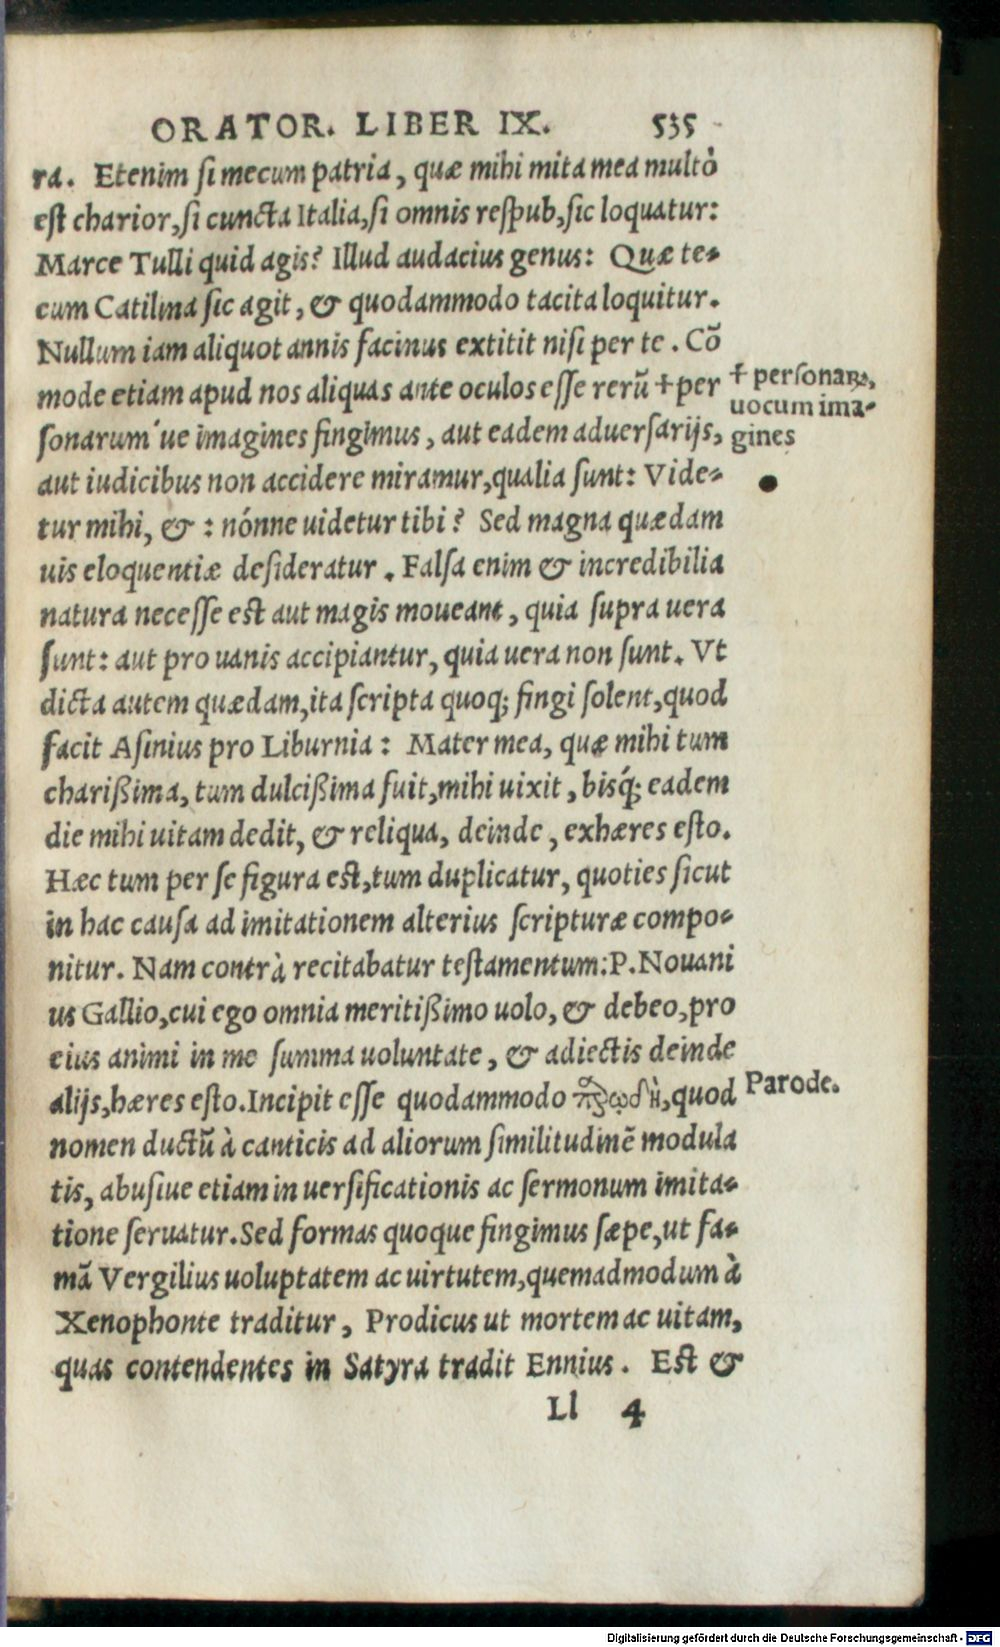 ORATOR. LIBER IX. 535
ra. Etenim si mecum patria, quæ mihi mita mea multò
est charior, si cuncta Italia, si omnis respub, sic loquatur:
Marce Tulli quid agis? Illud audacius genus: Quæ te-
cum Catilina sic agit, & quodammodo tacita loquitur.
Nullum iam aliquot annis facinus extitit nisi per te. Cō
mode etiam apud nos aliquas ante oculos esse rerū † per
sonarum´ue imagines fingimus, aut eadem aduersarijs,
aut iudicibus non accidere miramur, qualia sunt: Vide-
tur mihi, & : nónne uidetur tibi? Sed magna quædam
uis eloquentiæ desideratur. Falsa enim & incredibilia
natura necesse est aut magis moueant, quia supra uera
sunt: aut pro uanis accipiantur, quia uera non sunt. Vt
dicta autem quædam, ita scripta quoq; fingi solent, quod
facit Asinius pro Liburnia: Mater mea, quæ mihi tum
charißima, tum dulcißima fuit, mihi uixit, bisq́; eadem
die mihi uitam dedit, & reliqua, deinde, exhæres esto.
Hæc tum per se figura est, tum duplicatur, quoties sicut
in hac causa ad imitationem alterius scripturæ compo-
nitur. Nam contrà recitabatur testamentum: P. Nouani
us Gallio, cui ego omnia meritißimo uolo, & debeo, pro
eius animi in me summa uoluntate, & adiectis deinde
alijs, hæres esto. Incipit esse quodammodo παρωδὴ, quod
nomen ductū à canticis ad aliorum similitudinē modula
tis, abusiue etiam in uersificationis ac sermonum imita-
tione seruatur. Sed formas quoque fingimus sæpe, ut fa-
mā Vergilius uoluptatem ac uirtutem, quemadmodum à
Xenophonte traditur, Prodicus ut mortem ac uitam,
quas contendentes in Satyra tradit Ennius. Est &
Ll 4
† personaꝝ,
uocum ima-
gines
Parode.
Digitalisierung gefördert durch die Deutsche Forschungsgemeinschaft - DFG